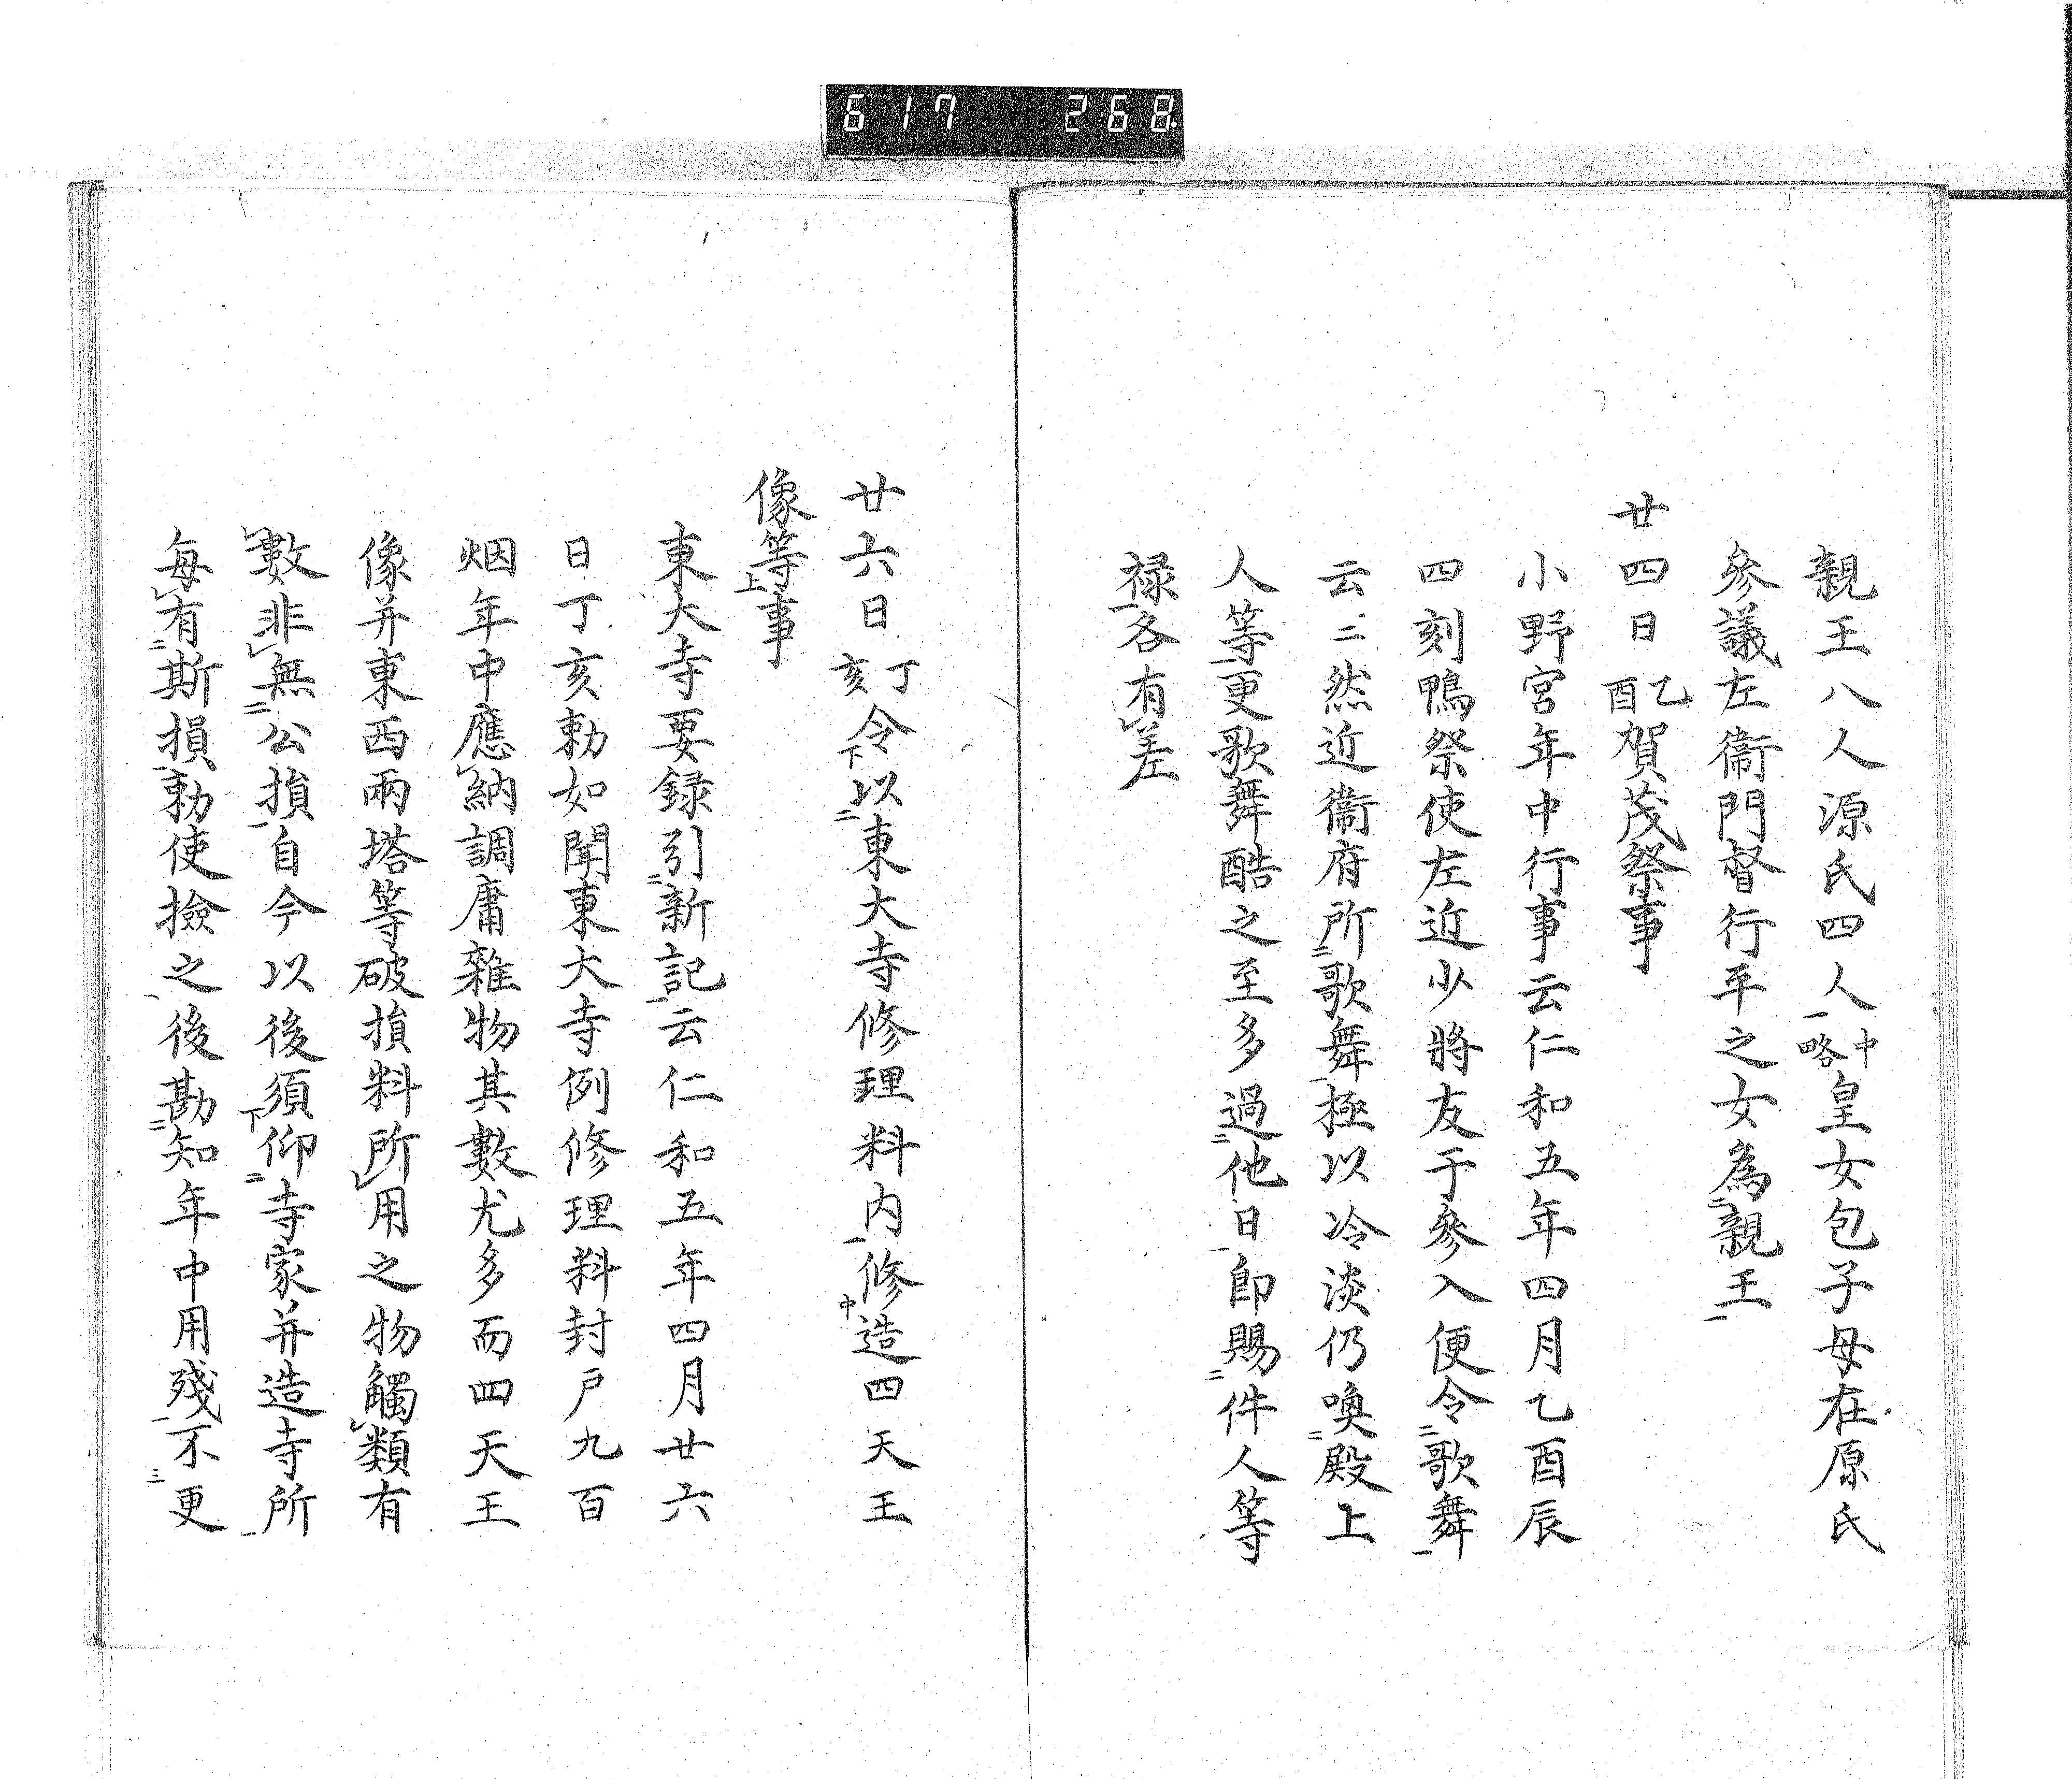 617 268
親王八人源氏四人中略皇女包子母在原氏
參議左衞門督行平之女為親王
廿四日乙酉賀茂祭事
小野宮年中行事云仁和五年四月乙酉辰
四刻鴨祭使左近少將友于參入便令歌舞
云〻然近衞府所歌舞極以冷淡仍喚殿上
人等更歌舞酷之至多過他日即賜件人等
祿各有差
廿六日丁亥令以東大寺修理料内修造四天王
像等事
東大寺要録引新記云仁和五年四月廿六
日丁亥勅如聞東大寺例修理料封戸九百
烟年中應納調庸雜物其數尤多而四天王
像并東西兩塔等破損料所用之物觸類有
數非無公損自今以後須仰寺家并造寺所
每有斯損勅使撿之後勘知年中用殘不更